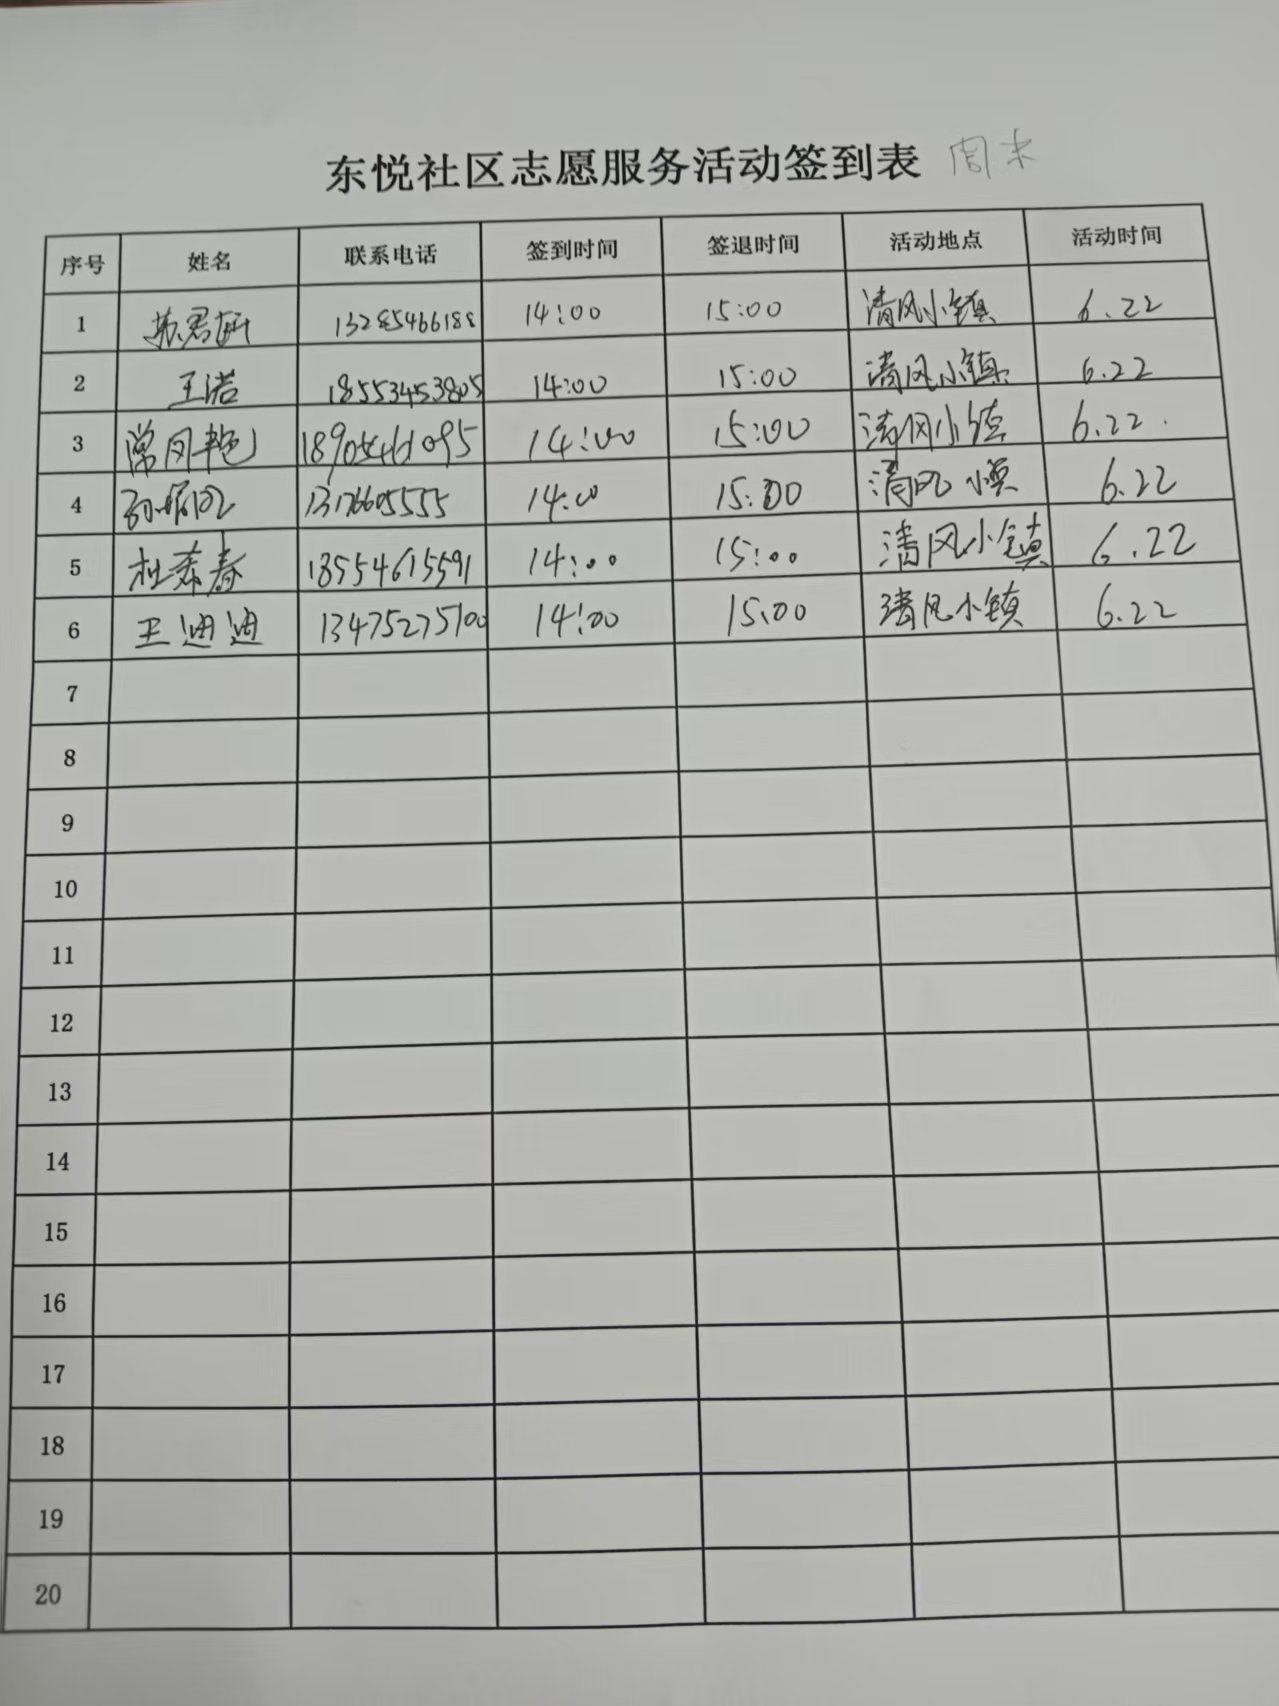 东悦社区志愿服务活动签到表 周末
序号 姓名 联系电话 签到时间 签退时间 活动地点 活动时间
1 13285466188 14:00 15:00 清风小镇 6.22
2 王诺 18553453805 14:00 15:00 清风小镇 6.22
3 常风艳 18905461095 14:00 15:00 清风小镇 6.22.
4 14:00 15:00 清风小镇 6.22
5 杜希春 18554615591 14:00 15:00 清风小镇 6.22
6 王迪迪 13475275100 14:00 15:00 清风小镇 6.22
7
8
9
10
11
12
13
14
15
16
17
18
19
20